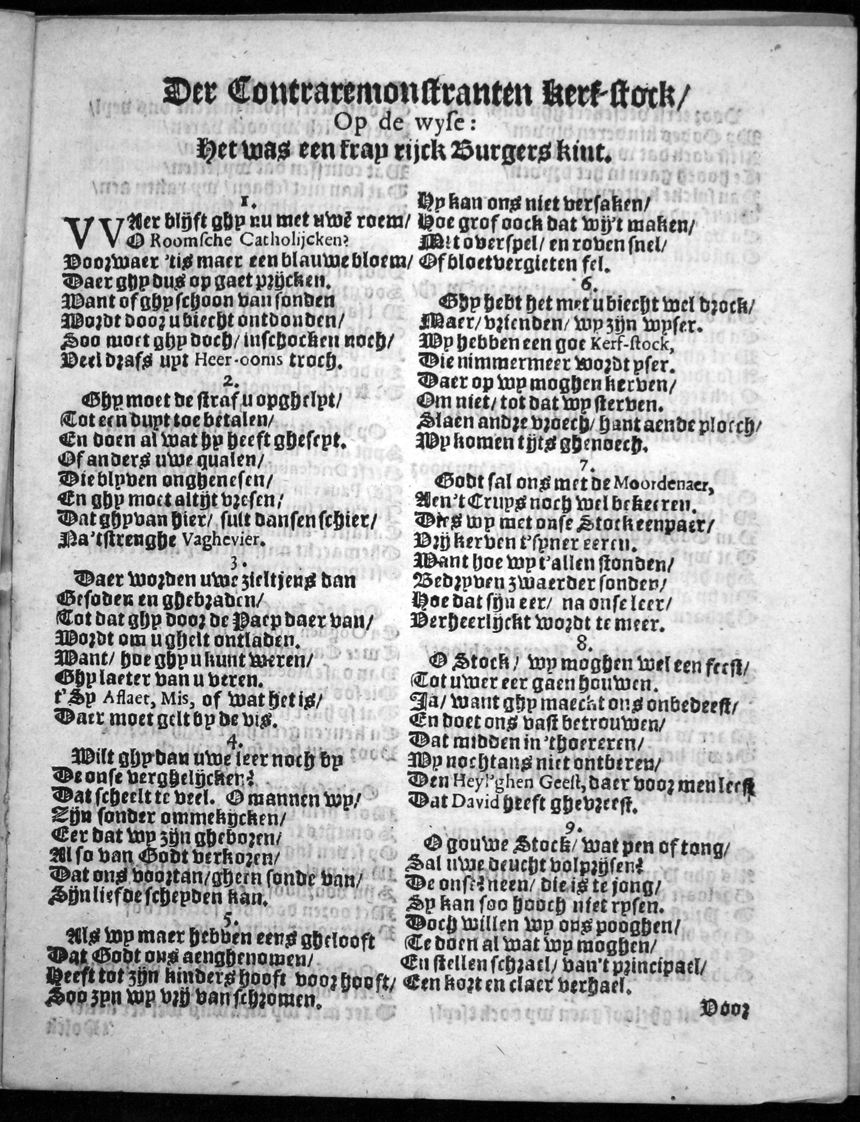 Der Contraremonstranten kerf-stock/
Op de wyse:
Het was een fray rijck Burgers kint.
1.
VVAer blijft ghy nu met uwē roem/
O Roomsche Catholijcken?
Voorwaer 'tis maer een blauwe bloem/
Daer ghy dus op gaet prijcken.
Want of ghy schoon van sonden
Wordt door u biecht ontbonden/
Soo moet ghy doch/ inschocken noch/
Veel drafs uyt Heer-ooms troch.
2.
Ghy moet de straf u opgheleyt/
Tot een duyt toe betalen/
En doen al wat hy heeft gheseyt.
Of anders uwe qualen/
Die blyven onghenesen/
En ghy moet altijt vresen/
Dat ghy van hier/ sult dansen schier/
Na'tstrenghe Vaghevier.
3.
Daer worden uwe zieltjens dan
Gesoden en ghebraden/
Tot dat ghy door de Paep daer van/
Wordt om u ghelt ontladen.
Want/ hoe ghy u kunt weren/
Ghy laeter van u veren.
t'Sy Aflaet, Mis, of wat het is/
Daer moet gelt by de vis.
4.
Wilt ghy dan uwe leer noch by
De onse verghelijcken?
Dat scheelt te veel. O mannen wy/
Zijn sonder ommekijcken/
Eer dat wy zijn gheboren/
Al so van Godt verkoren/
Dat ons voortan/ gheen sonde van/
Sijn liefde scheyden kan.
5.
Als wy maer hebben eens ghelooft
Dat Godt ons aenghenomen/
Heeft tot zijn kinders hooft voor hooft/
Soo zyn wy vrij van schromen.
Hy kan ons niet versaken/
Hoe grof oock dat wij't maken/
Mit overspel/ en roven snel/
Of bloetvergieten fel.
6.
Ghy hebt het met u biecht wel drock/
Maer/ vrienden/ wy zijn wyser.
Wy hebben een goe Kerf-stock,
Die nimmermeer wordt yser.
Daer op wy moghen kerven/
Om niet/ tot dat wy sterven.
Slaen andre vroech/ hant aende ploech/
Wy komen tijts ghenoech.
7.
Godt sal ons met de Moordenaer,
Aen't Cruys noch wel bekeeren.
Dies wy met onse Stock eenpaer/
Vrij kerven t'syner eeren.
Want hoe wy t'allen stonden/
Bedryven zwaerder sonden/
Hoe dat sijn eer/ na onse leer/
Verheerlijckt wordt te meer.
8.
O Stock/ wy moghen wel een feest/
Tot uwer eer gaen houwen.
Ja/ want ghy maeckt ons onbedeest/
En doet ons vast betrouwen/
Dat midden in 'thoereren/
Wy nochtans niet ontberen/
Den Heyl'ghen Geest, daer voor men leest
Dat David heeft ghevreest.
9.
O gouwe Stock/ wat pen of tong/
Sal uwe deucht volprijsen?
De onse? neen/ die is te jong/
Sy kan soo hooch niet rysen.
Doch willen wy ons pooghen/
Te doen al wat wy moghen/
En stellen schrael/ van't principael/
Een kort en claer verhael.
Door